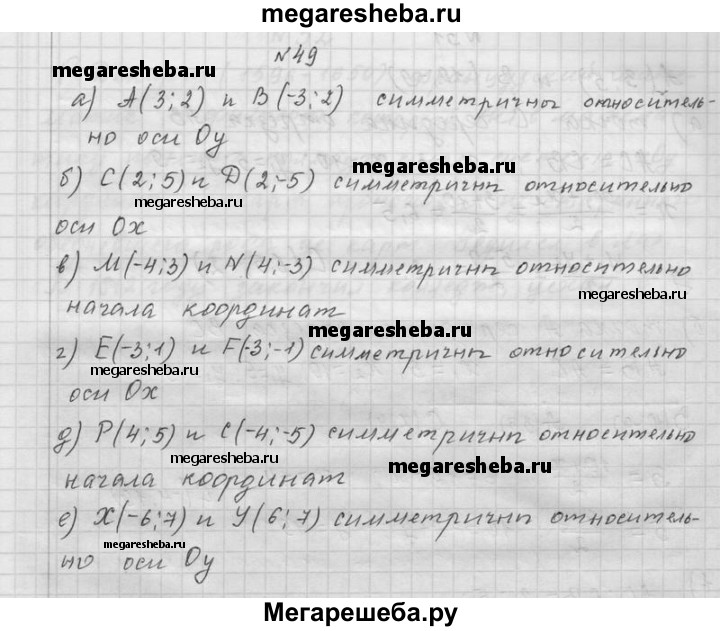 megaresheba.ru
№49
megaresheba.ru
а) A(3;2) и B(-3;2) симметричны относитель-
но оси Oy
megaresheba.ru
б) C(2;5) и D(2;-5) симметричны относительно
megaresheba.ru
оси Ox
в) M(-4;3) и N(4;-3) симметричны относительно
megaresheba.ru
начала координат
megaresheba.ru
г) E(-3;1) и F(-3;-1) симметричны относительно
megaresheba.ru
оси Ox
д) P(4;5) и C(-4;-5) симметричны относительно
megaresheba.ru
megaresheba.ru
начала координат
е) X(-6;7) и Y(6;7) симметричны относитель-
megaresheba.ru
но оси Oy
Мегарешеба.ру